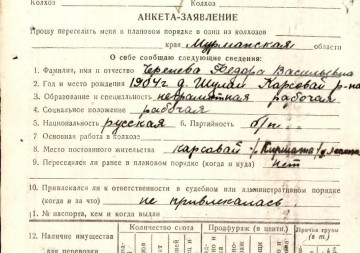 Колхоз Колхоз
АНКЕТА-ЗАЯВЛЕНИЕ
Прошу переселить меня в плановом порядке в один из колхозов
края Мурманская области
О себе сообщаю следующие сведения:
1. Фамилия, имя и отчество Васильевна
2. Год и место рождения 1904 г. д. Карсовай р-на
3. Образование и специальность неграмотная рабочая
4. Социальное положение рабочая
5. Национальность русская 6. Партийность б/п.
7. Основная работа в колхозе
8. Место постоянного жительства карсовай
9. Переселялся ли ранее в плановом порядке (когда и куда) нет
10. Привлекался ли к ответственности в судебном или административном порядке
(когда и за что) не привлекалась.
11. № паспорта, кем и когда выдан
12. Наличие имущества для перевозки
Количество скота
Профураж (в цент.)
Прочие грузы (в т.)